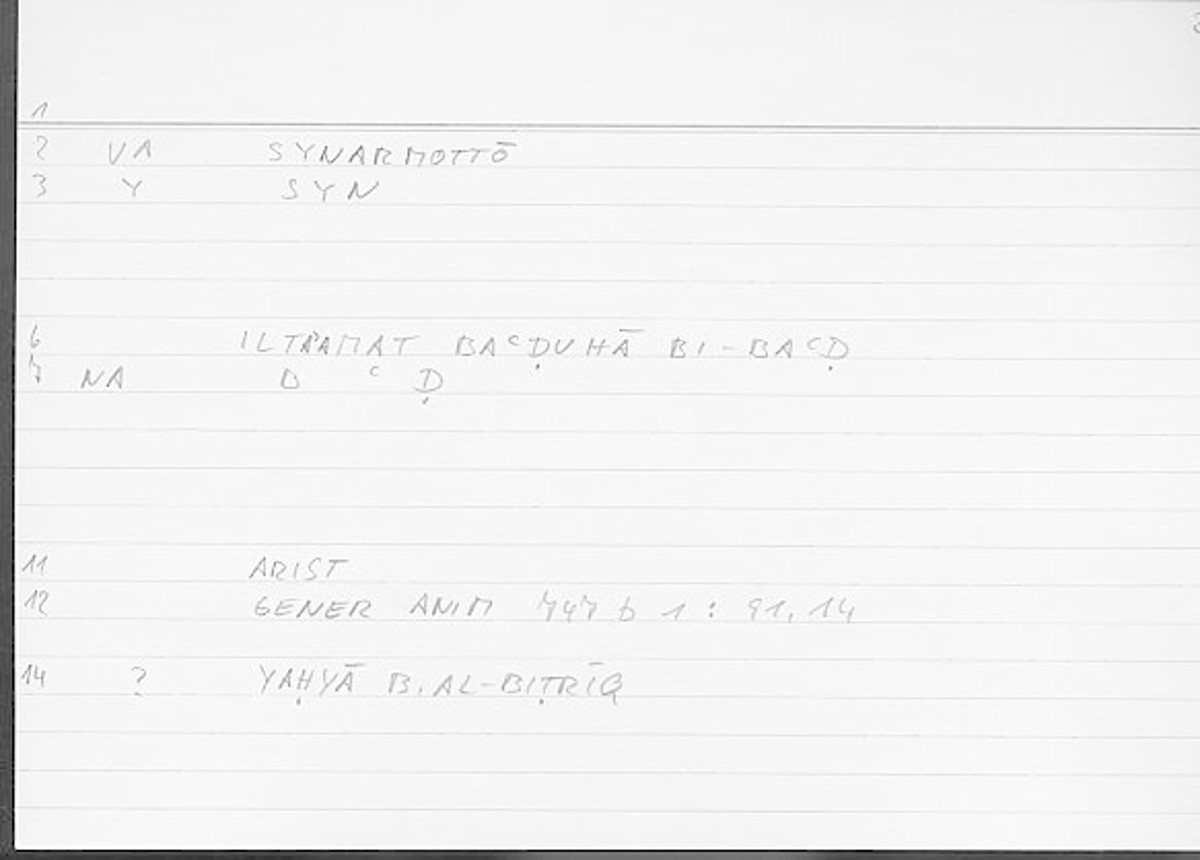 1
2 VA SYNARMOTTŌ
3 Y SYN
6 ILTA'AMAT BAᶜḌUHĀ BI-BAᶜḌ
7 NA B ᶜ Ḍ
11 ARIST
12 GENER ANIM 747 b 1 : 91, 14
14 ? YAḤYĀ B. AL-BIṬRĪQ